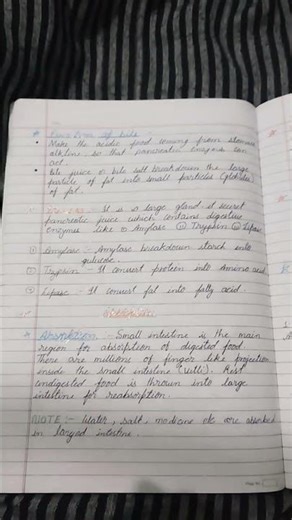 * Function of bile :
• Make the acidic food coming from stomach
alkline, so that pancreatic enzyme can
act.
• Bile juice or bile salt breakdown the large
particle of fat into small particles (globules)
of fat.
It is a large gland it secret
pancreatic juice which contains digestive
enzymes like ① Amylase ② Trypsin ③ Lipase
① Amylase :- Amylase breakdown starch into
gulucose.
② Trypsin - It convert protein into Amino acid
③ Lipase :- It convert fat into fatty acid.
* Absorption :- Small intestine is the main
region for absorption of digested food.
There are millions of finger like projection
inside the small intestine (villi). Rest
undigested food is thrown into large
intestine for reabsorption.
NOTE :- Water, salt, medicine etc are absorbed
in larged intestine.
Page No.